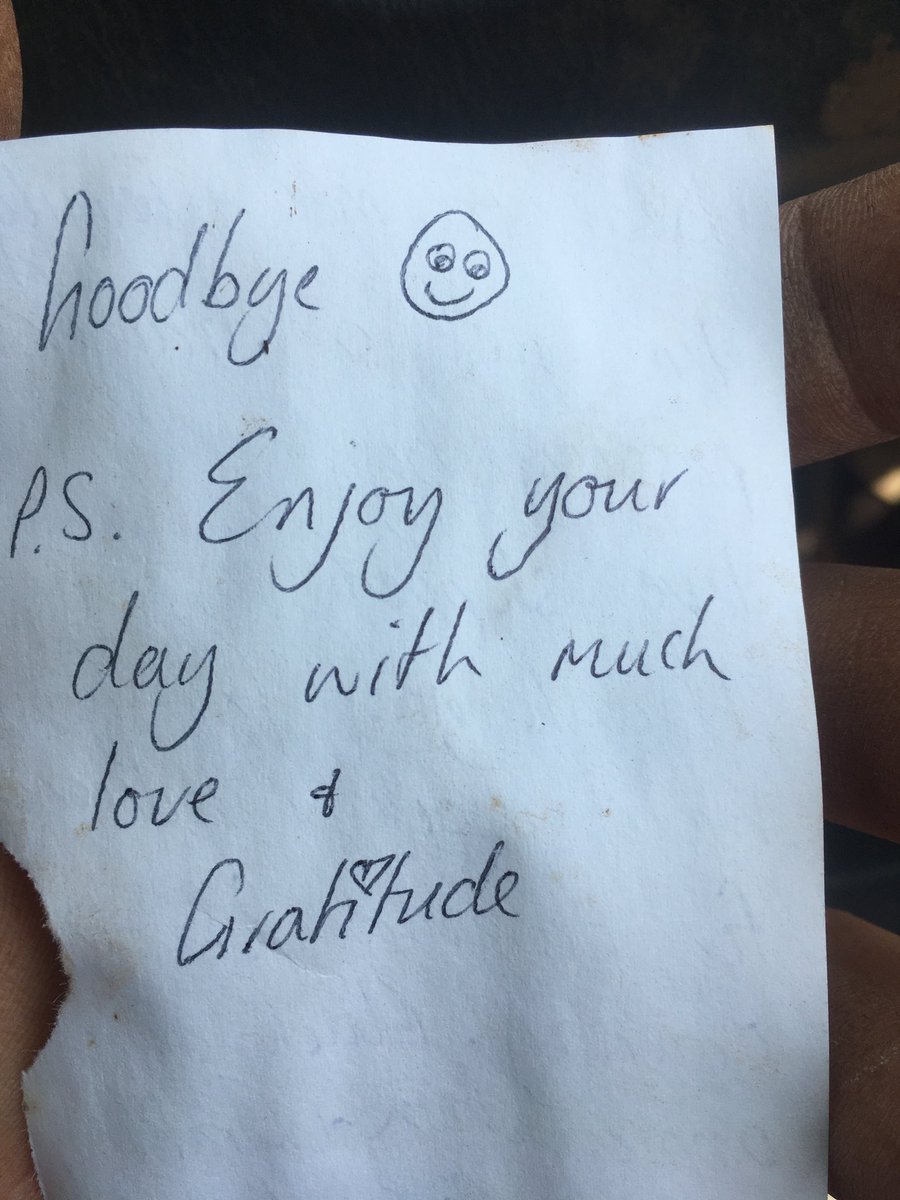 Goodbye
P.S. Enjoy your
day with much
love &
Gratitude